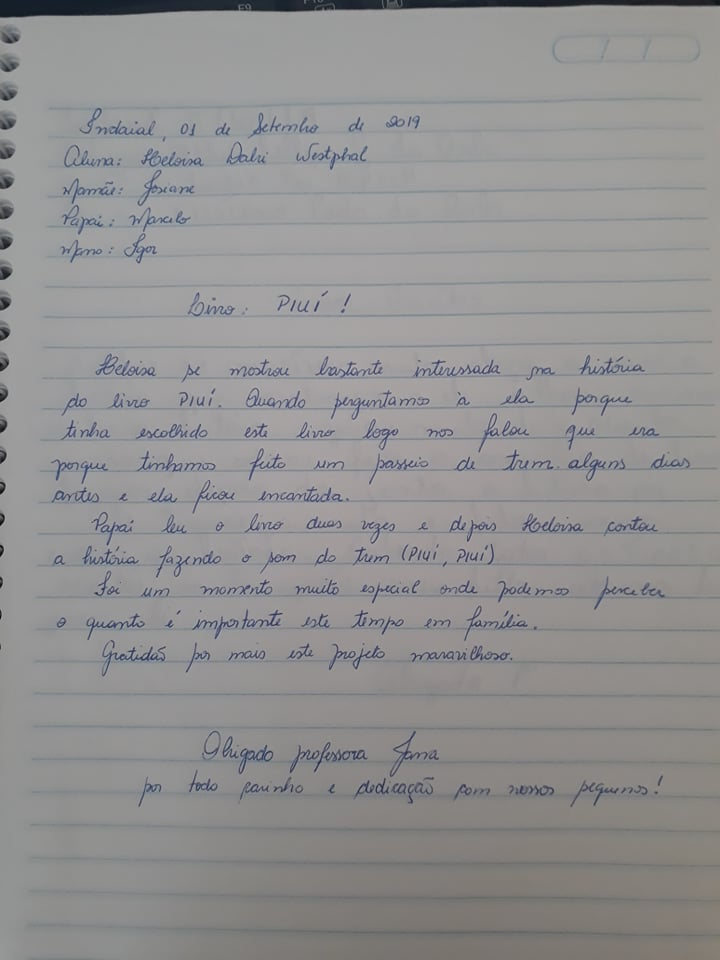 F9
Indaial, 01 de Setembro de 2019
Aluna: Heloisa Dalri Westphal
Mamãe: Josiane
Papai: Marcelo
Mano: Igor
Livro: PIUÍ!
Heloisa se mostrou bastante interessada na história
do livro PIUÍ. Quando perguntamos à ela porque
tinha escolhido este livro logo nos falou que era
porque tinhamos feito um passeio de trem alguns dias
antes e ela ficou encantada.
Papai leu o livro duas vezes e depois Heloisa contou
a história fazendo o som do trem (PIUÍ, PIUÍ)
Foi um momento muito especial onde podemos perceber
o quanto é importante este tempo em família.
Gratidão por mais este projeto maravilhoso.
Obrigado professora Jana
por todo carinho e dedicação com nossos pequenos!